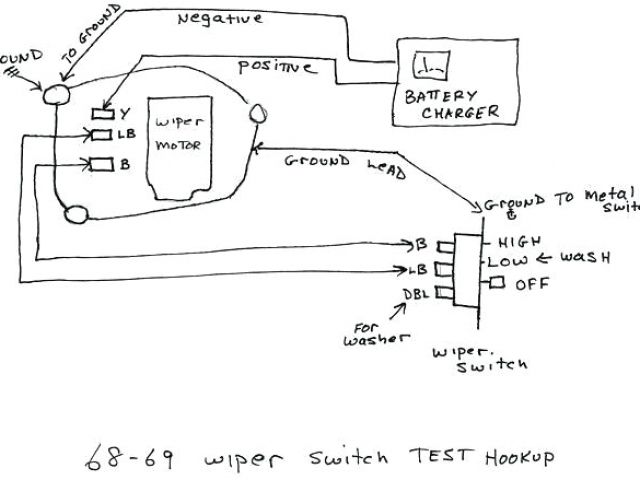 NEGATIVE
TO GROUND
OUND
POSITIVE
BATTERY
CHARGER
Y
LB
B
WIPER
MOTOR
GROUND LEAD
GROUND TO METAL
SWITC
B
HIGH
LB
LOW ← WASH
DBL
OFF
FOR
WASHER
WIPER.
SWITCH
68-69 WIPER SWITCH TEST HOOKUP